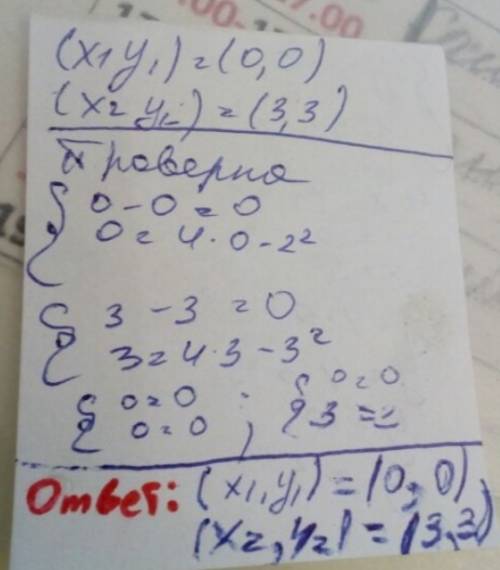 (x₁ y₁) = (0,0)
(x₂ y₂) = (3,3)
Проверка
{ 0 - 0 = 0
0 = 4·0 - 2²
{ 3 - 3 = 0
3 = 4·3 - 3²
{ 0 = 0 ; { 0 = 0
0 = 0 , 3 =
Ответ: (x₁, y₁) = (0, 0),
(x₂, y₂) = (3,3)